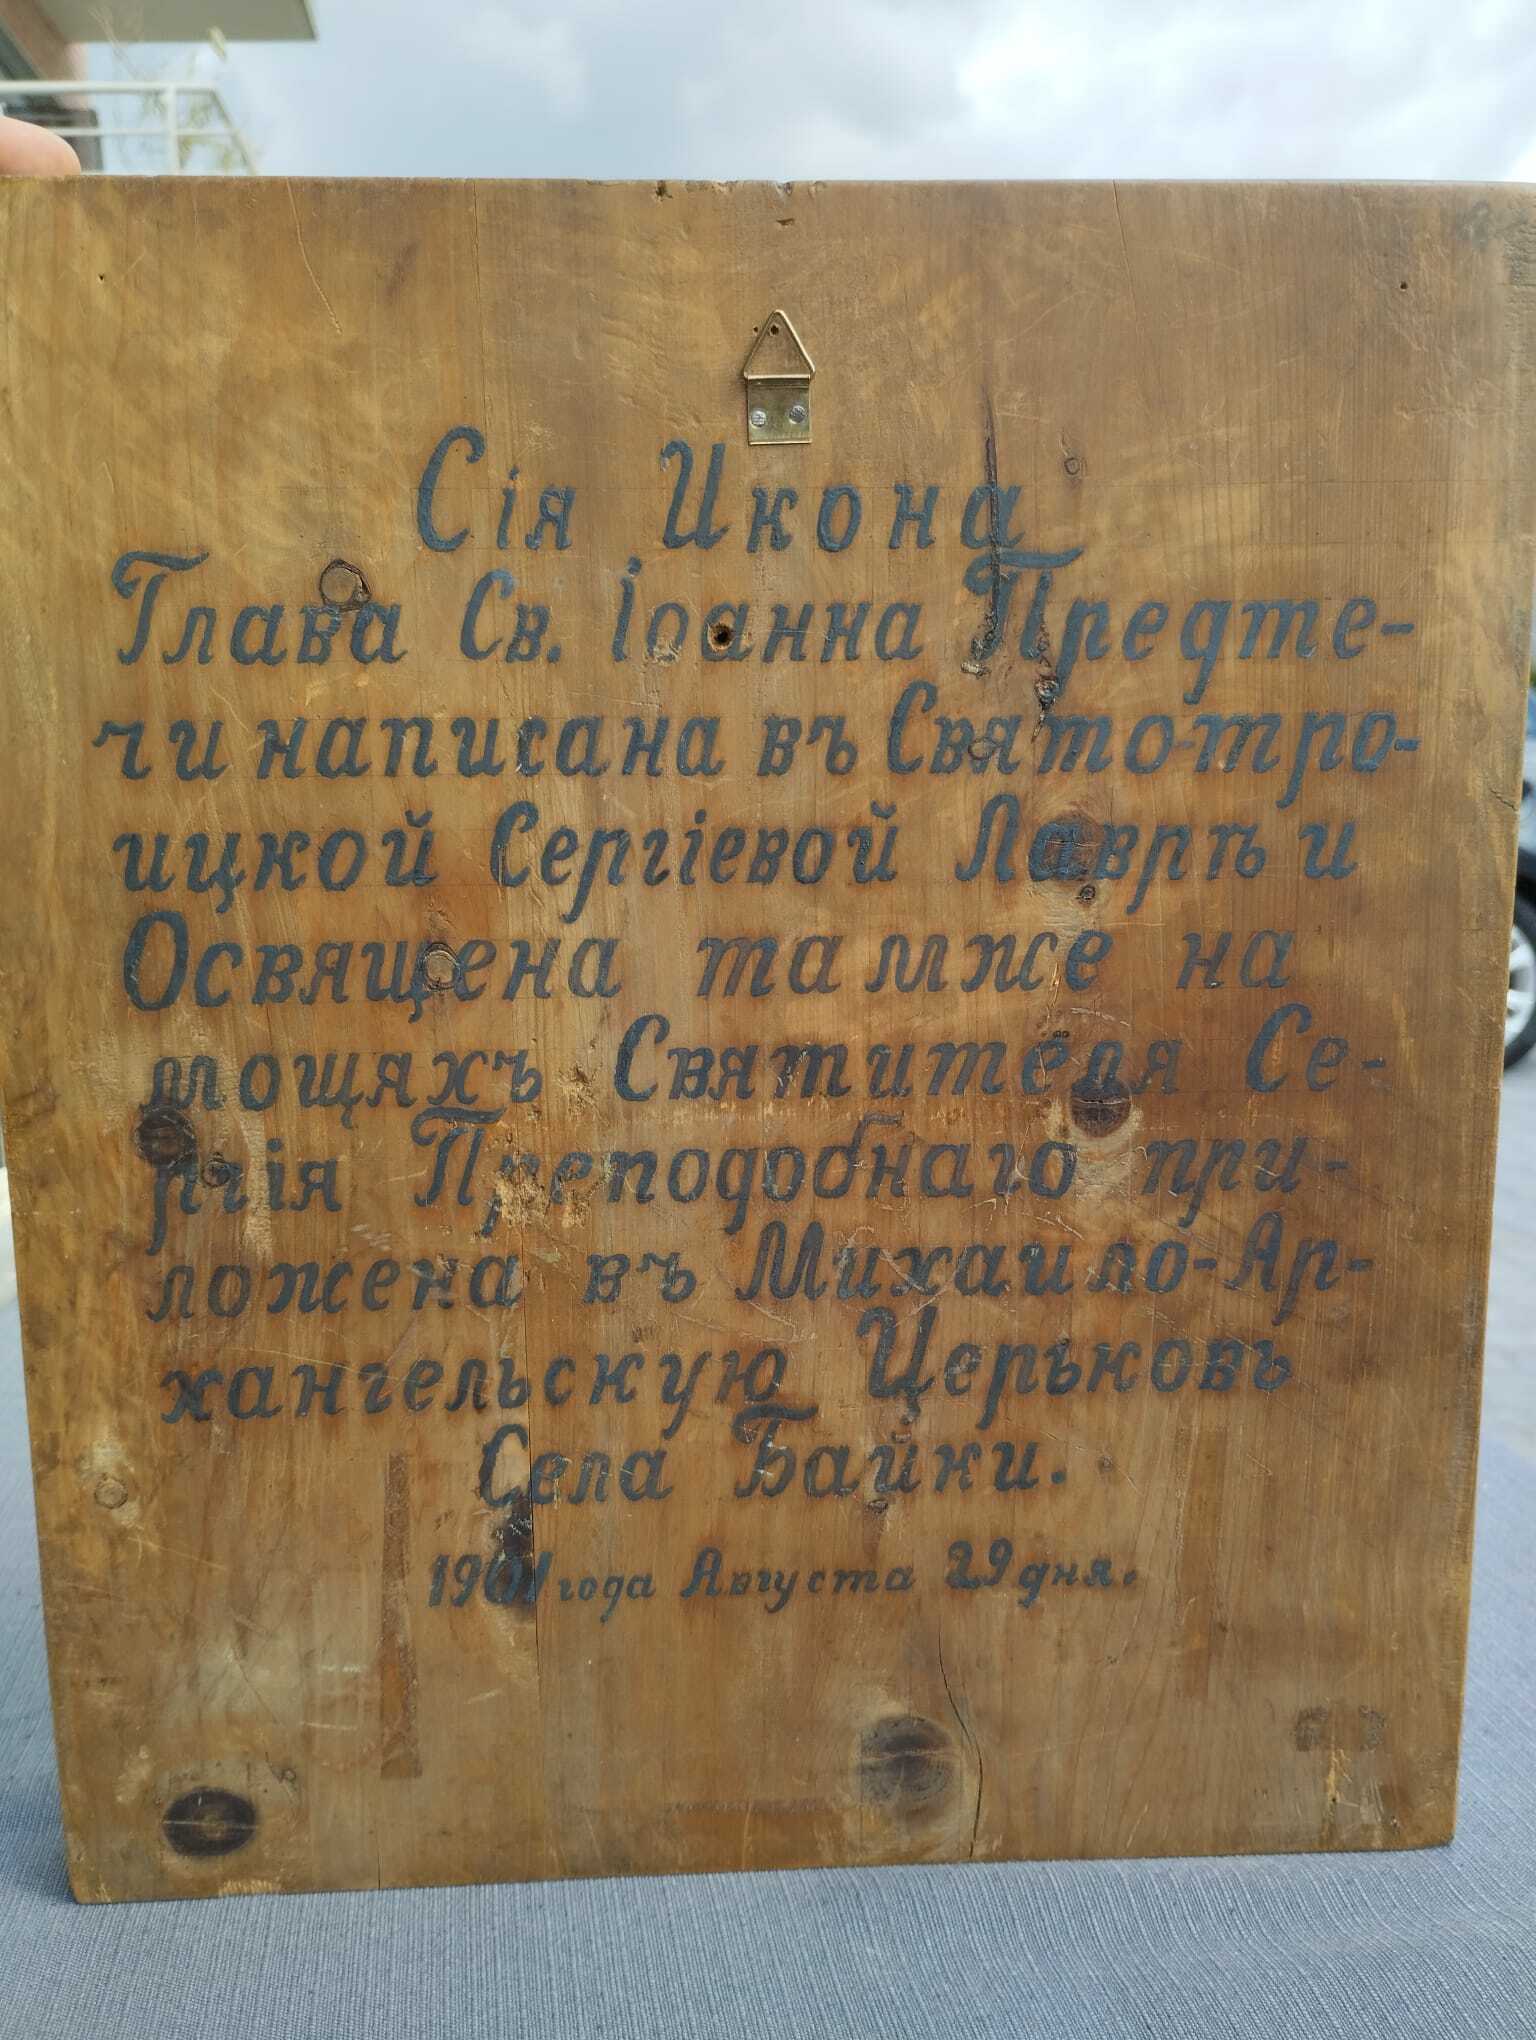 Сія Икона
Глава Св. Іоанна Предте-
чи написана въ Свято-тро-
ицкой Сергіевой Лаврѣ и
Освящена тамже на
мощахъ Святителя Се-
ргія Преподобнаго при-
ложена въ Михаило-Ар-
хангельскую Церьковь
Села Байки.
1901 года Августа 29 дня.